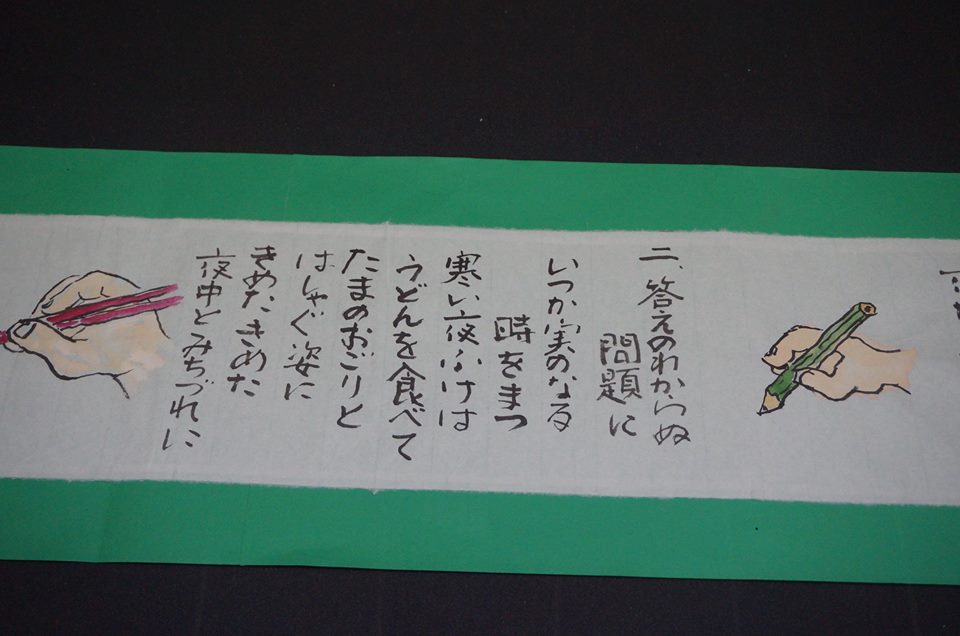 二、答えのわからぬ
問題に
いつか実のなる
時をまつ
寒い夜ふけは
うどんを食べて
たまのおごりと
はしゃぐ姿に
きめたきめた
夜中とみちづれに